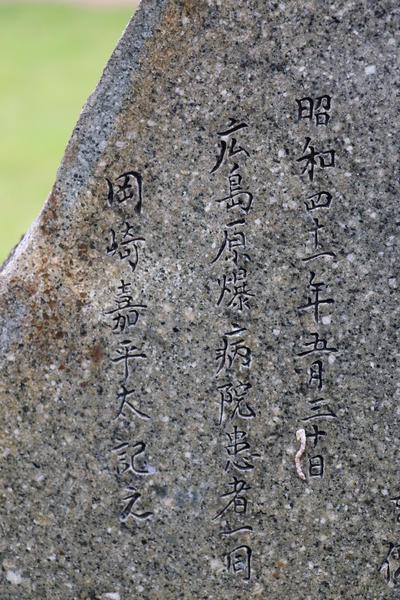 昭和四十一年五月三十日
広島原爆病院患者一同
岡崎嘉平太 記之